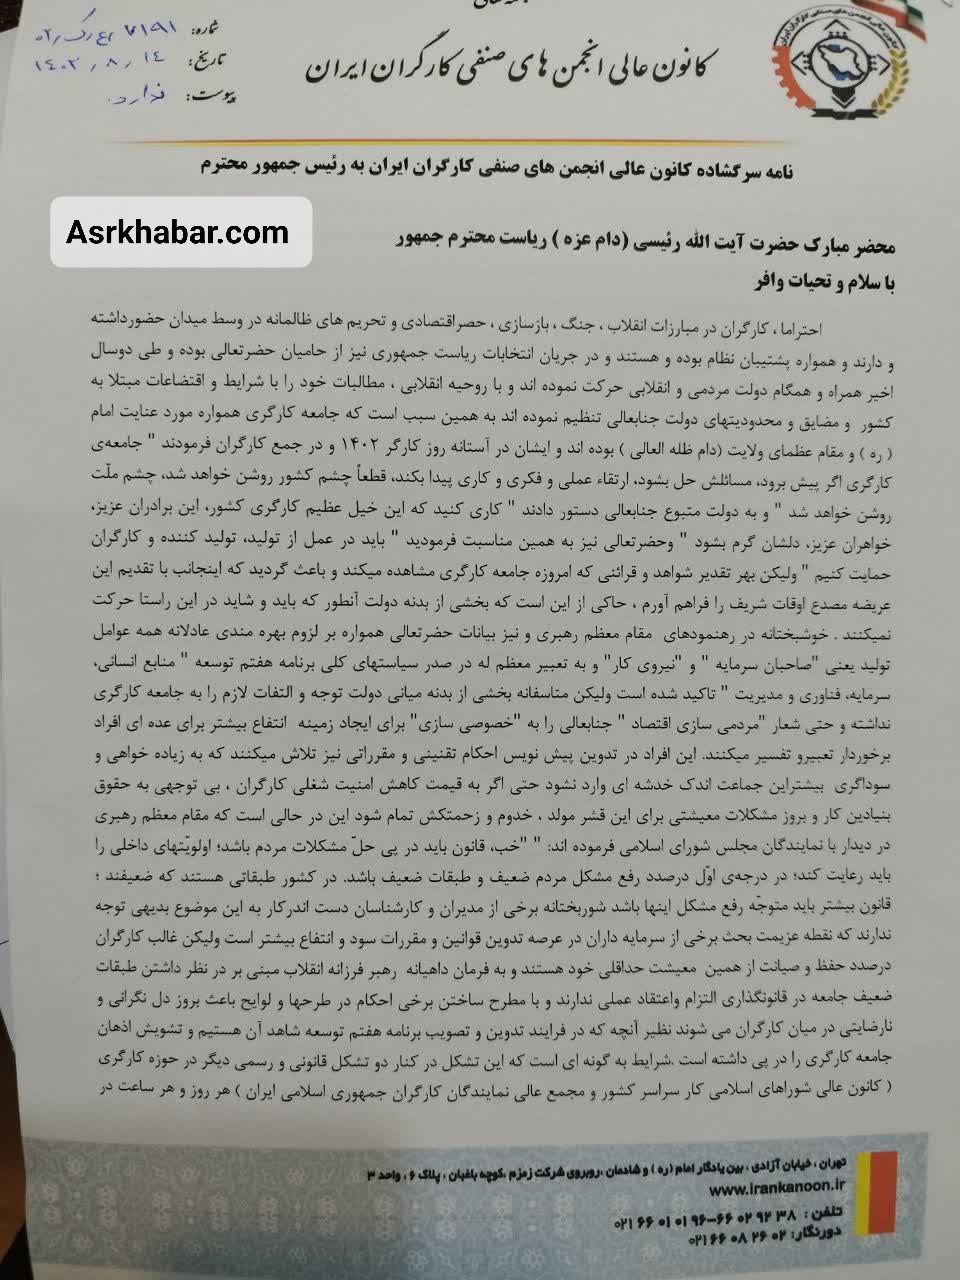 شماره: ۷۱۹۱
تاریخ: ۱۴۰۲/۸/۱۴
پیوست: ندارد.
کانون عالی انجمن های صنفی کارگران ایران
نامه سرگشاده کانون عالی انجمن های صنفی کارگران ایران به رئیس جمهور محترم
Asrkhabar.com
محضر مبارک حضرت آیت الله رئیسی (دام عزه ) ریاست محترم جمهور
با سلام و تحیات وافر
احتراما ، کارگران در مبارزات انقلاب ، جنگ ، بازسازی ، حصراقتصادی و تحریم های ظالمانه در وسط میدان حضورداشته
و دارند و همواره پشتیبان نظام بوده و هستند و در جریان انتخابات ریاست جمهوری نیز از حامیان حضرتعالی بوده و طی دوسال
اخیر همراه و همگام دولت مردمی و انقلابی حرکت نموده اند و با روحیه انقلابی ، مطالبات خود را با شرایط و اقتضاعات مبتلا به
کشور و مضایق و محدودیتهای دولت جنابعالی تنظیم نموده اند به همین سبب است که جامعه کارگری همواره مورد عنایت امام
( ره ) و مقام عظمای ولایت (دام ظله العالی ) بوده اند و ایشان در آستانه روز کارگر ۱۴۰۲ و در جمع کارگران فرمودند " جامعه‌ی
کارگری اگر پیش برود، مسائلش حل بشود، ارتقاء عملی و فکری و کاری پیدا بکند، قطعاً چشم کشور روشن خواهد شد، چشم ملّت
روشن خواهد شد " و به دولت متبوع جنابعالی دستور دادند " کاری کنید که این خیل عظیم کارگری کشور، این برادران عزیز،
خواهران عزیز، دلشان گرم بشود " وحضرتعالی نیز به همین مناسبت فرمودید " باید در عمل از تولید، تولید کننده و کارگران
حمایت کنیم " ولیکن بهر تقدیر شواهد و قرائنی که امروزه جامعه کارگری مشاهده میکند و باعث گردید که اینجانب با تقدیم این
عریضه مصدع اوقات شریف را فراهم آورم ، حاکی از این است که بخشی از بدنه دولت آنطور که باید و شاید در این راستا حرکت
نمیکنند . خوشبختانه در رهنمودهای مقام معظم رهبری و نیز بیانات حضرتعالی همواره بر لزوم بهره مندی عادلانه همه عوامل
تولید یعنی "صاحبان سرمایه " و "نیروی کار" و به تعبیر معظم له در صدر سیاستهای کلی برنامه هفتم توسعه " منابع انسانی،
سرمایه، فناوری و مدیریت " تاکید شده است ولیکن متاسفانه بخشی از بدنه میانی دولت توجه و التفات لازم را به جامعه کارگری
نداشته و حتی شعار "مردمی سازی اقتصاد " جنابعالی را به "خصوصی سازی" برای ایجاد زمینه انتفاع بیشتر برای عده ای افراد
برخوردار تعبیرو تفسیر میکنند. این افراد در تدوین پیش نویس احکام تقنینی و مقرراتی نیز تلاش میکنند که به زیاده خواهی و
سوداگری بیشتراین جماعت اندک خدشه ای وارد نشود حتی اگر به قیمت کاهش امنیت شغلی کارگران ، بی توجهی به حقوق
بنیادین کار و بروز مشکلات معیشتی برای این قشر مولد ، خدوم و زحمتکش تمام شود این در حالی است که مقام معظم رهبری
در دیدار با نمایندگان مجلس شورای اسلامی فرموده اند: " "خب، قانون باید در پی حلّ مشکلات مردم باشد؛ اولویّتهای داخلی را
باید رعایت کند؛ در درجه‌ی اوّل درصدد رفع مشکل مردم ضعیف و طبقات ضعیف باشد. در کشور طبقاتی هستند که ضعیفند ؛
قانون بیشتر باید متوجّه رفع مشکل اینها باشد شوربختانه برخی از مدیران و کارشناسان دست اندرکار به این موضوع بدیهی توجه
ندارند که نقطه عزیمت بحث برخی از سرمایه داران در عرصه تدوین قوانین و مقررات سود و انتفاع بیشتر است ولیکن غالب کارگران
درصدد حفظ و صیانت از همین معیشت حداقلی خود هستند و به فرمان داهیانه رهبر فرزانه انقلاب مبنی بر در نظر داشتن طبقات
ضعیف جامعه در قانونگذاری التزام واعتقاد عملی ندارند و با مطرح ساختن برخی احکام در طرحها و لوایح باعث بروز دل نگرانی و
نارضایتی در میان کارگران می شوند نظیر آنچه که در فرایند تدوین و تصویب برنامه هفتم توسعه شاهد آن هستیم و تشویش اذهان
جامعه کارگری را در پی داشته است .شرایط به گونه ای است که این تشکل در کنار دو تشکل قانونی و رسمی دیگر در حوزه کارگری
( کانون عالی شوراهای اسلامی کار سراسر کشور و مجمع عالی نمایندگان کارگران جمهوری اسلامی ایران ) هر روز و هر ساعت در
تهران ، خیابان آزادی ، بین یادگار امام (ره ) و شادمان ،روبروی شرکت زمزم ،کوچه باغبان ، پلاک ۶ ، واحد ۳
www.irankanoon.ir
تلفن : ۳۸ ۹۲ ۰۲ ۶۶-۹۶ ۰۱ ۰۱ ۶۶ ۰۲۱
دورنگار: ۰۲ ۲۶ ۰۸ ۶۶ ۰۲۱